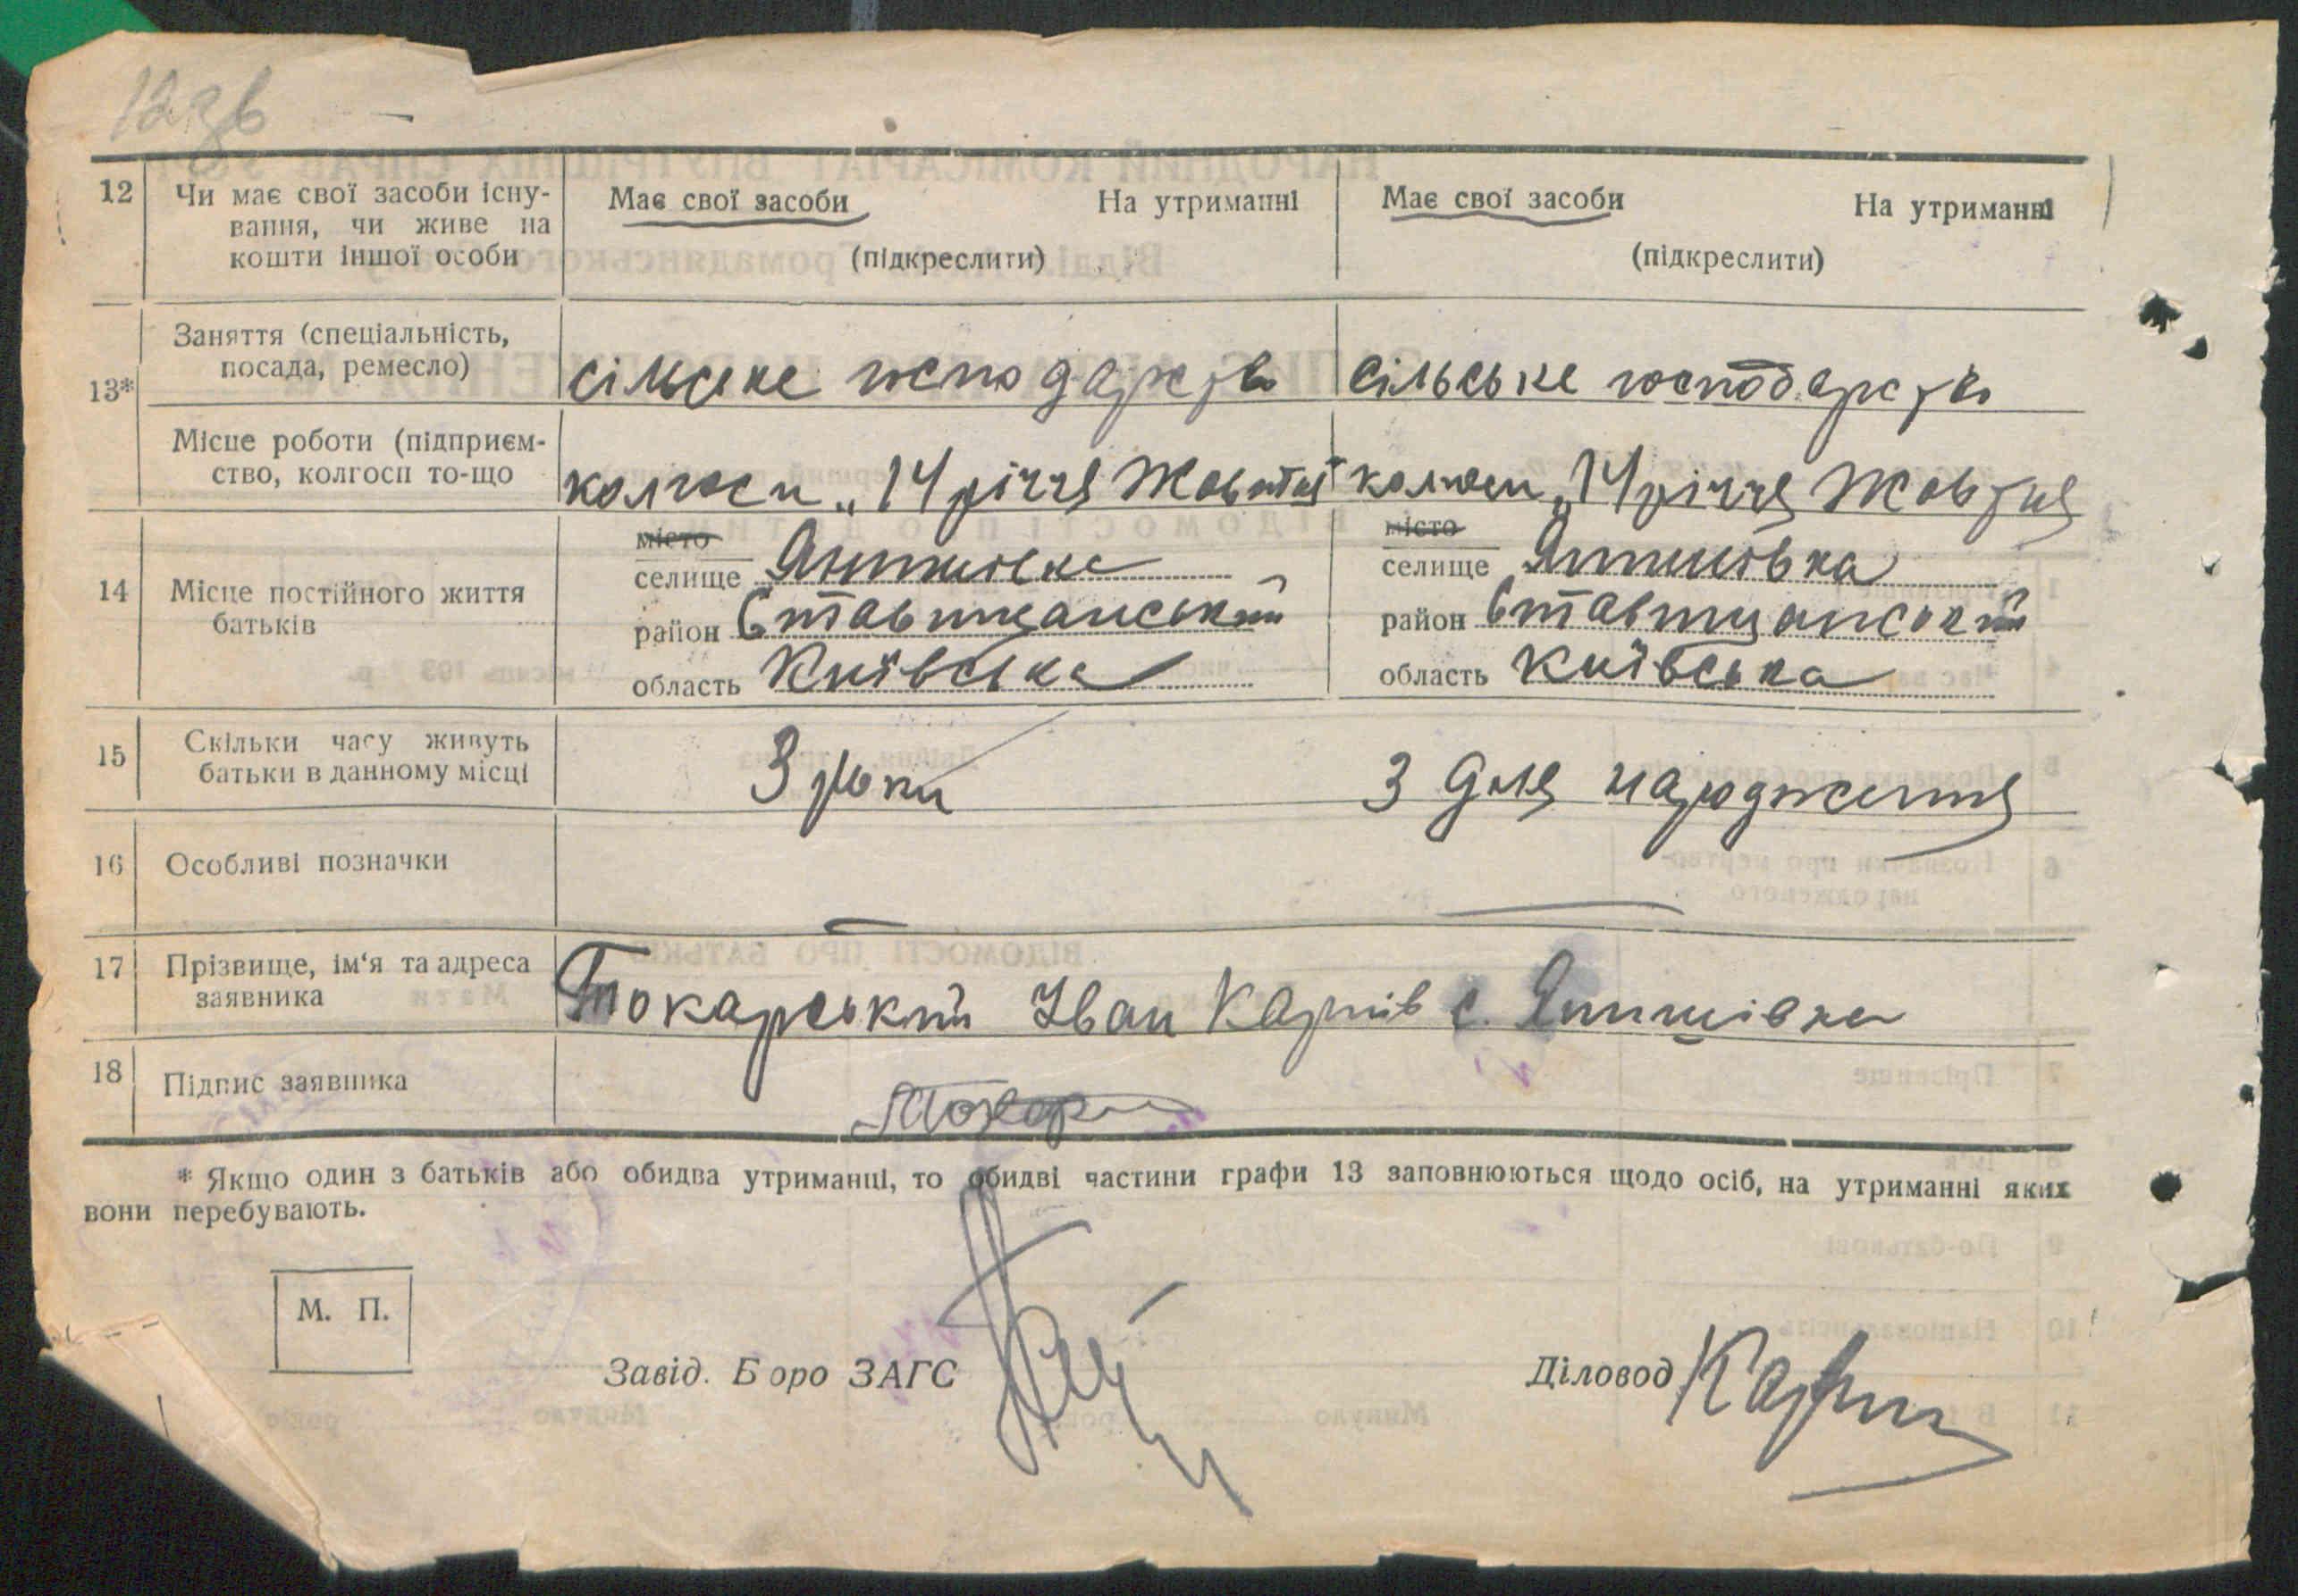 12зв
12 Чи має свої засоби існу-
вання, чи живе на
кошти іншої особи
Має свої засоби На утриманні Має свої засоби На утриманні
(підкреслити) (підкреслити)
13*
Заняття (спеціальність,
посада, ремесло)
сільське господарство сільське господарство
Місце роботи (підприєм-
ство, колгосп то-що
колгосп „14 річчя Жовтня" колгосп „14 річчя Жовтня
14 Місце постійного життя
батьків
місто
селище Янишівка
район Ставищанський
область Київська
місто
селище Янишівка
район Ставищанський
область Київська
15 Скільки часу живуть
батьки в данному місці
3 роки З дня народження
16 Особливі позначки
17 Прізвище, ім‘я та адреса
заявника
Токарський Іван Карпів с. Янишівка
18 Підпис заявника
* Якщо один з батьків або обидва утриманці, то обидві частини графи 13 заповнюються щодо осіб, на утриманні яких
вони перебувають.
М. П.
Завід. Бюро ЗАГС
Діловод